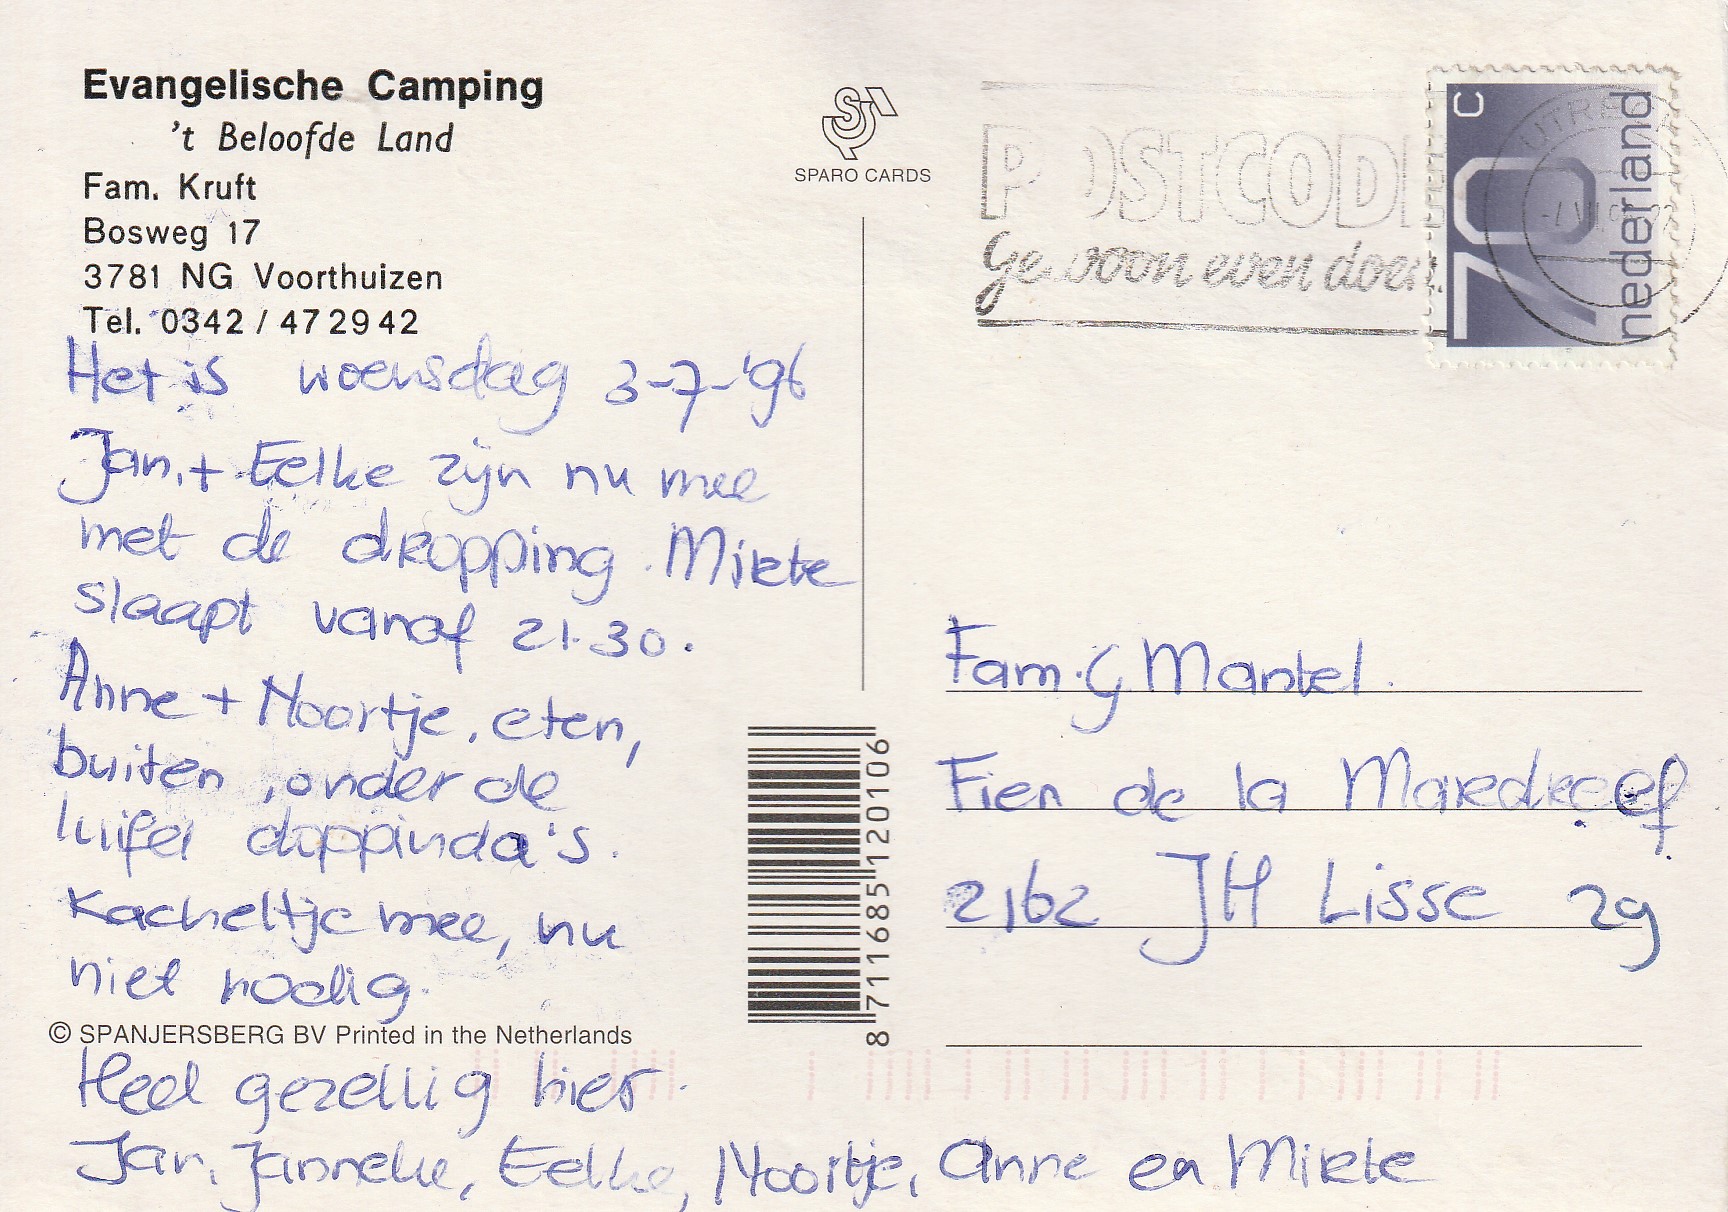 Evangelische Camping
't Beloofde Land
Fam. Kruft
Bosweg 17
3781 NG Voorthuizen
Tel. 0342 / 47 29 42
Het is woensdag 3-7-'96
Jan + Eelke zijn nu mee
met de dropping. Mirte
slaapt vanaf 21.30.
Anne + Noortje, eten,
buiten, onder de
luifel doppinda's.
Kacheltje mee, nu
niet nodig.
© SPANJERSBERG BV Printed in the Netherlands
Heel gezellig hier.
Jan, Janneke, Eelke, Noortje, Anne en Mirte
SPARO CARDS
8 711685 120106
POSTCODE
Gewoon even doen.
70 C
nederland
UTRECHT
Fam. G Mantel.
Fien de la Mardreef
2162 JH Lisse 29